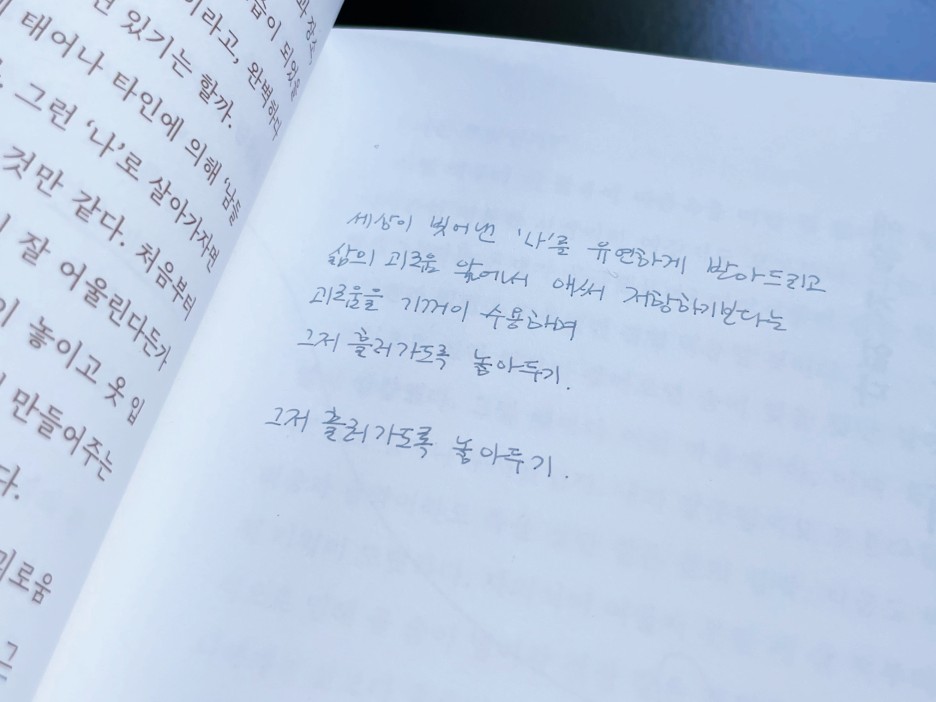 과 장소
습이 되었을
이라고, 완벽하다
면 있기는 할까.
태어나 타인에 의해 '남들
그런 '나'로 살아가자면
것만 같다. 처음부터
잘 어울린다든가
이 놓이고 옷 입
만들어주는
다.
괴로움
그
세상이 빚어낸 '나'를 유연하게 받아드리고
삶의 괴로움 앞에서 애써 저항하기보다는
괴로움을 기꺼이 수용하며
그저 흘러가도록 놓아두기.
그저 흘러가도록 놓아두기.